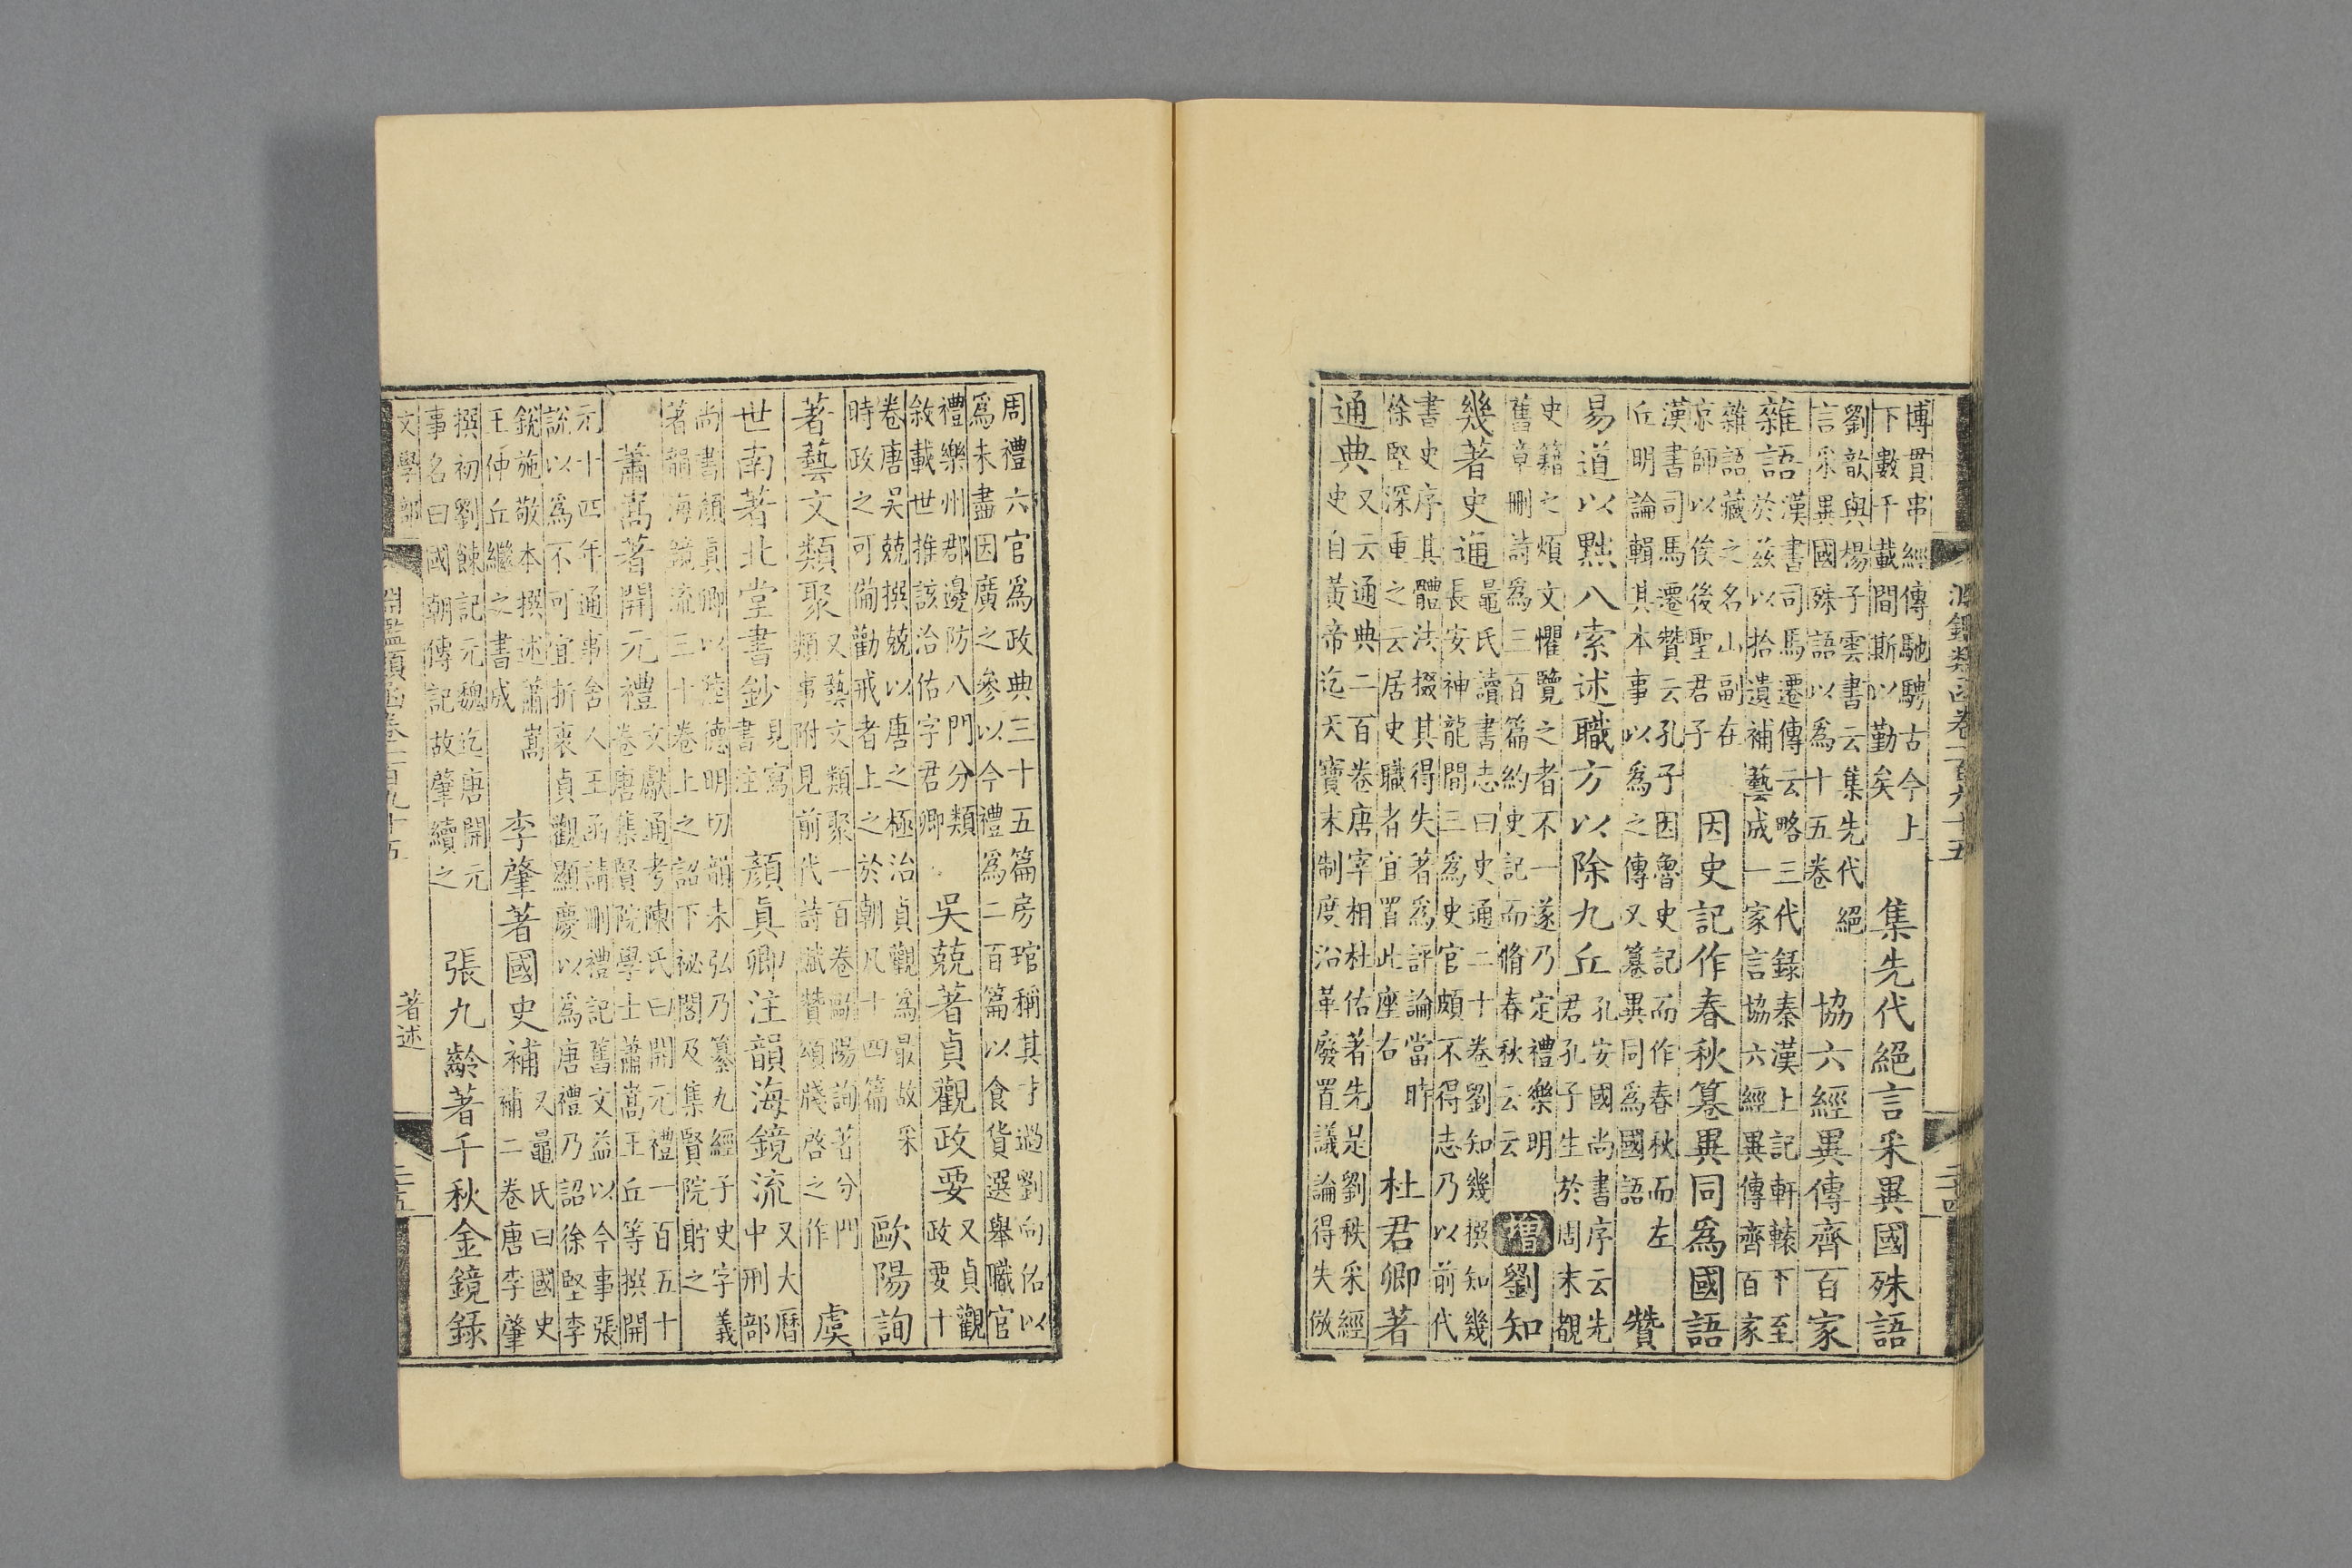 淵鑑類函卷一百九十五 二十四
博貫串經傳馳騁古今上
下數千載間斯以勤矣
集先代絕言采異國殊語
劉歆與楊子雲書云集先代絕
言采異國殊語以爲十五卷
協六經異傳齊百家
雜語
漢書司馬遷傳云略三代錄秦漢上記軒轅下至
於茲以拾遺補藝成一家言協六經異傳齊百家
雜語藏之名山副在
京師以俟後聖君子
因史記作春秋篡異同爲國語
漢書司馬遷贊云孔子因魯史記而作春秋而左
丘明論輯其本事以爲之傳又篡異同爲國語
贊
易道以黜八索述職方以除九丘
孔安國尚書序云先
君孔子生於周末覩
史籍之煩文懼覽之者不一遂乃定禮樂明
舊章刪詩爲三百篇約史記而脩春秋云云
增劉知
幾著史通
鼂氏讀書志曰史通二十卷劉知幾撰知幾
長安神龍間三爲史官頗不得志乃以前代
書史序其體法掇其得失著爲評論當時
徐堅深重之云居史職者宜置此座右
杜君卿著
通典
又云通典二百卷唐宰相杜佑著先是劉秩采經
史自黃帝迄天寶末制度沿革廢置議論得失倣
周禮六官爲政典三十五篇房琯稱其才過劉向佑以
爲未盡因廣之參以今禮爲二百篇以食貨選舉職官
禮樂州郡邊防八門分類
敘載世推該洽佑字君卿
吳兢著貞觀政要
又貞觀
政要十
卷唐吳兢撰兢以唐之極治貞觀爲最故采
時政之可備勸戒者上之於朝凡十四篇
歐陽詢
著藝文類聚
又藝文類聚一百卷歐陽詢著分門
類事附見前代詩賦贊頌牋啓之作
虞
世南著北堂書鈔
見寫
書注
顏眞卿注韻海鏡流
又大曆
中刑部
尚書顏眞卿以陸德明切韻未弘乃纂九經子史字義
著韻海鏡流三十卷上之詔下祕閣及集賢院貯之
蕭嵩著開元禮
文獻通考陳氏曰開元禮一百五十
卷唐集賢院學士蕭嵩王丘等撰開
元十四年通事舍人王嵒請刪禮記舊文益以今事張
說以爲不可宜折衷貞觀顯慶以爲唐禮乃詔徐堅李
銳施敬本撰述蕭嵩
王仲丘繼之書成
李肇著國史補
又鼂氏曰國史
補二卷唐李肇
撰初劉餗記元魏迄唐開元
事名曰國朝傳記故肇續之
張九齡著千秋金鏡錄
文學部 淵鑑類函卷一百九十五 著述 二十五